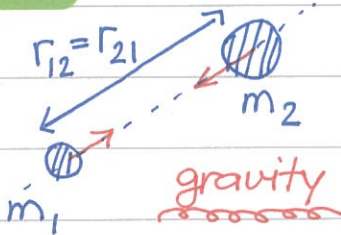 r₁₂ = r₂₁
m₂
m₁
gravity